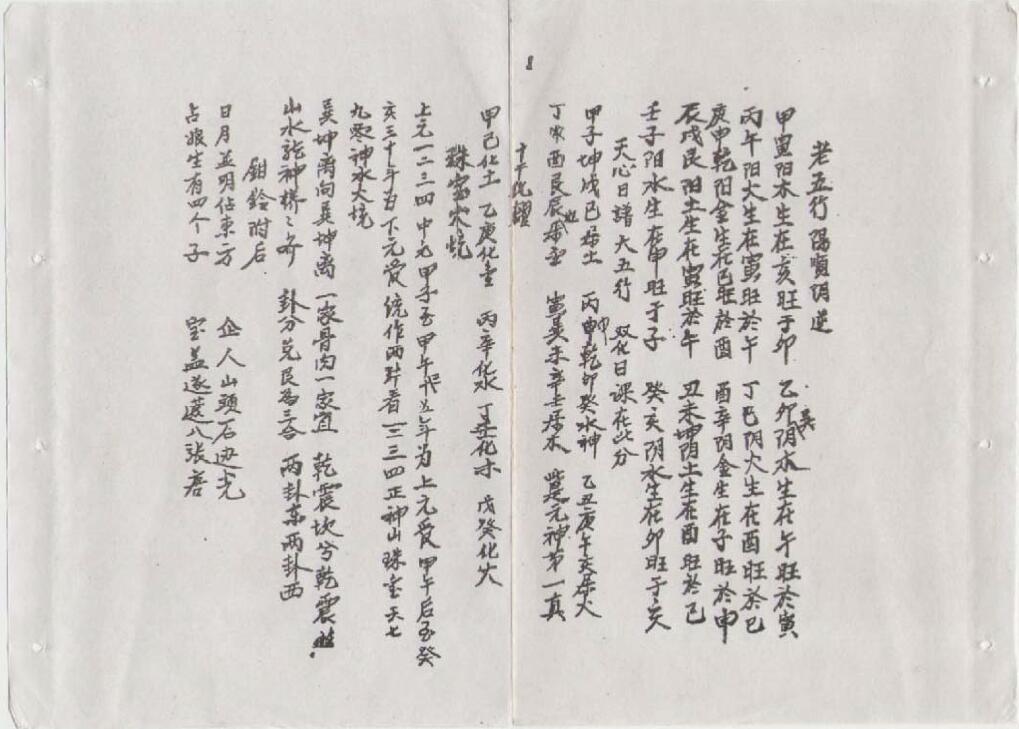 1
老五行陽順阴逆
甲寅阳木生在亥旺于卯 乙卯阴木生在午旺於寅
巽
丙午阳火生在寅旺於午 丁巳阴火生在酉旺於巳
庚申乾阳金生在巳旺於酉 酉辛阴金生在子旺於申
辰戌艮阳土生在寅旺於午 丑未坤阴土生在酉旺於巳
壬子阳水生在申旺于子 癸亥阴水生在卯旺于亥
天心日譜大五行 双化日课在此分
甲子坤戊已居土 丙申乾卯癸水神 乙丑庚午亥居火
丁 酉艮辰 金 寅巽未辛壬居木 是元神第一真
十干化耀
甲己化土 乙庚化金 丙辛化水 丁壬化木 戊癸化火
珠宝火坑
上元一二三四 中元甲子至甲午 五年为上元爰 甲午后至癸
亥三十年为下元爰 统作两 看 一二三四正神山珠宝 六七
九零神水火坑
巽坤离向巽坤离 一家骨肉一家宜 乾震坎兮乾震
山水龙神 卦分兑艮为三合 两卦东两卦西
钳鈴附后
日月並明佔東方 企人山頭石边光
占娘生有四个子 宝盖 八張